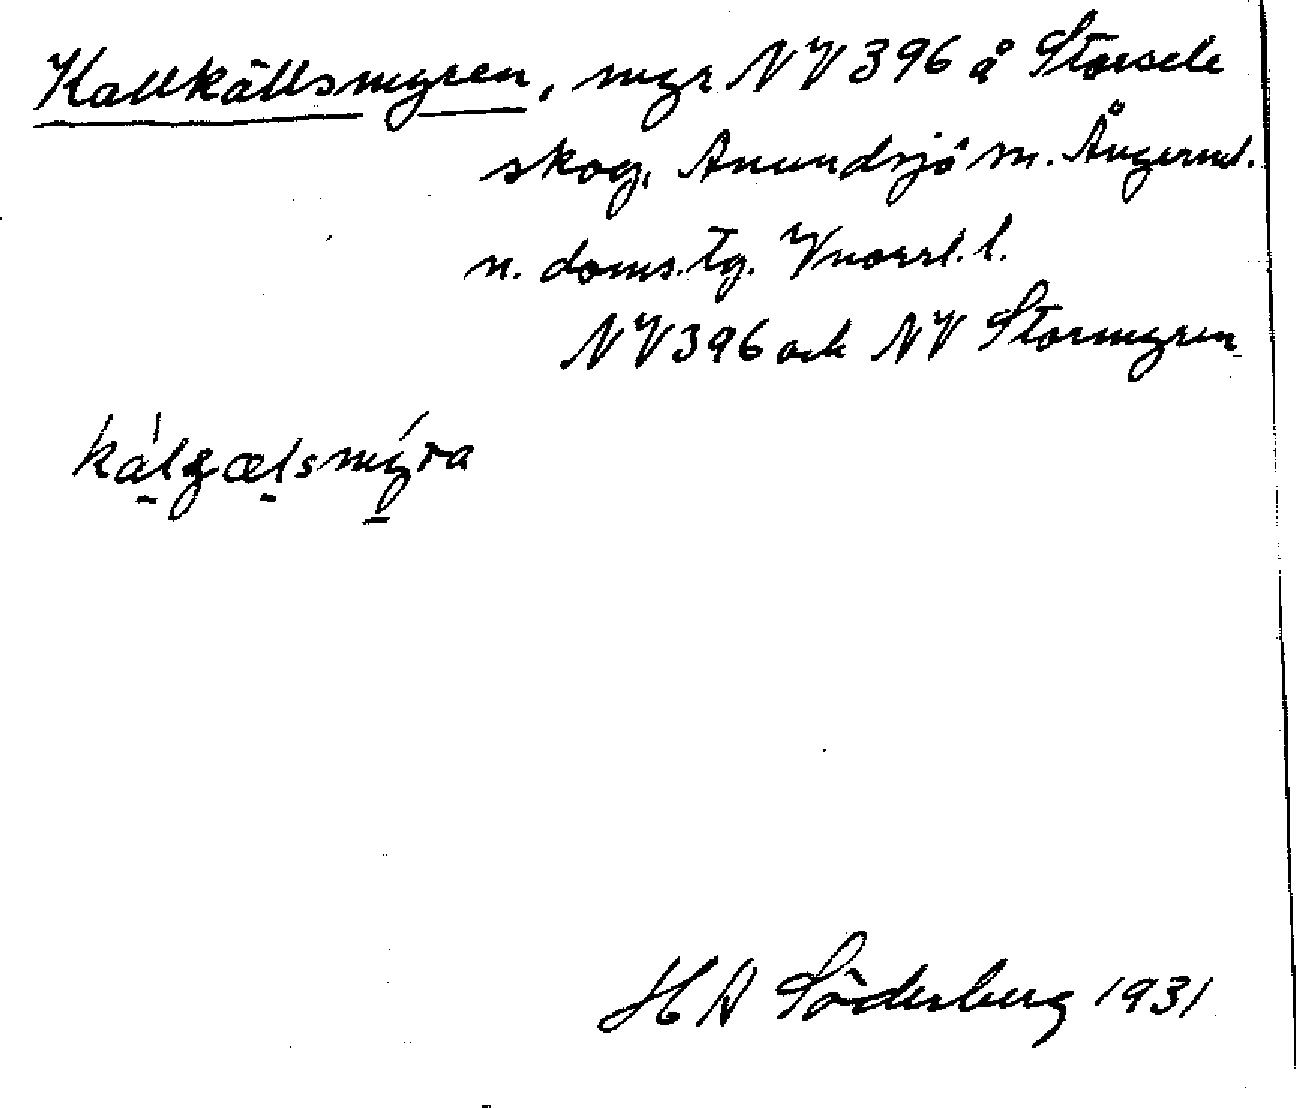 Kallkällsmyren, myr NV 396 å Storsele
skog, Anundsjö sn. Ångerml.
n. doms.tg. Vnorrl. l.
NV 396 och NV Stormyren
HA Söderberg 1931